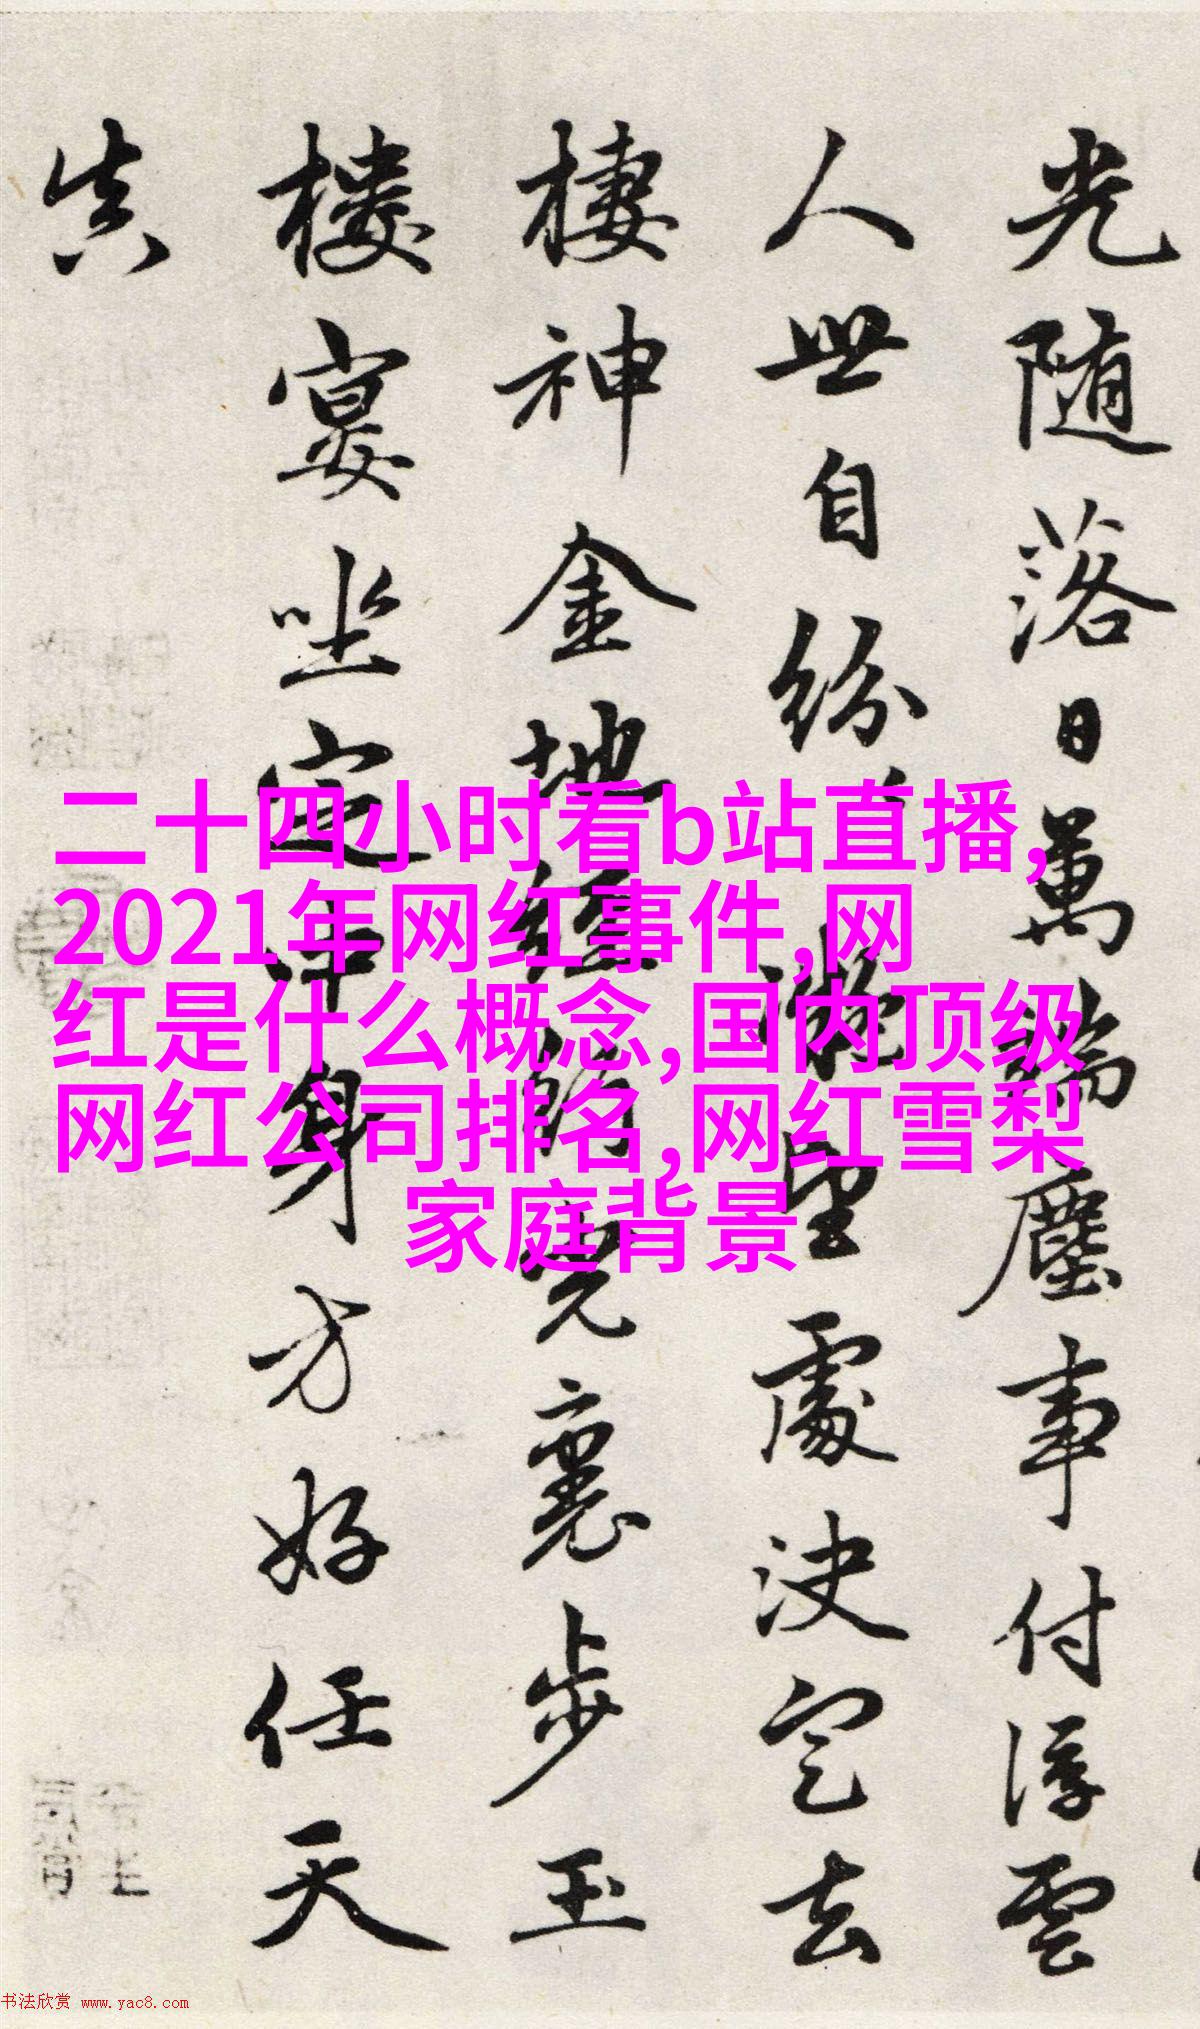 光随落日萬端塵事付浮雲
人世自紛
處決定去
棲神金地經
裏步玉
樓宴坐定中身方好任天
真
二十四小时看b站直播,
2021年网红事件,网
红是什么概念,国内顶级
网红公司排名,网红雪梨
家庭背景
书法欣赏 www.yac8.com